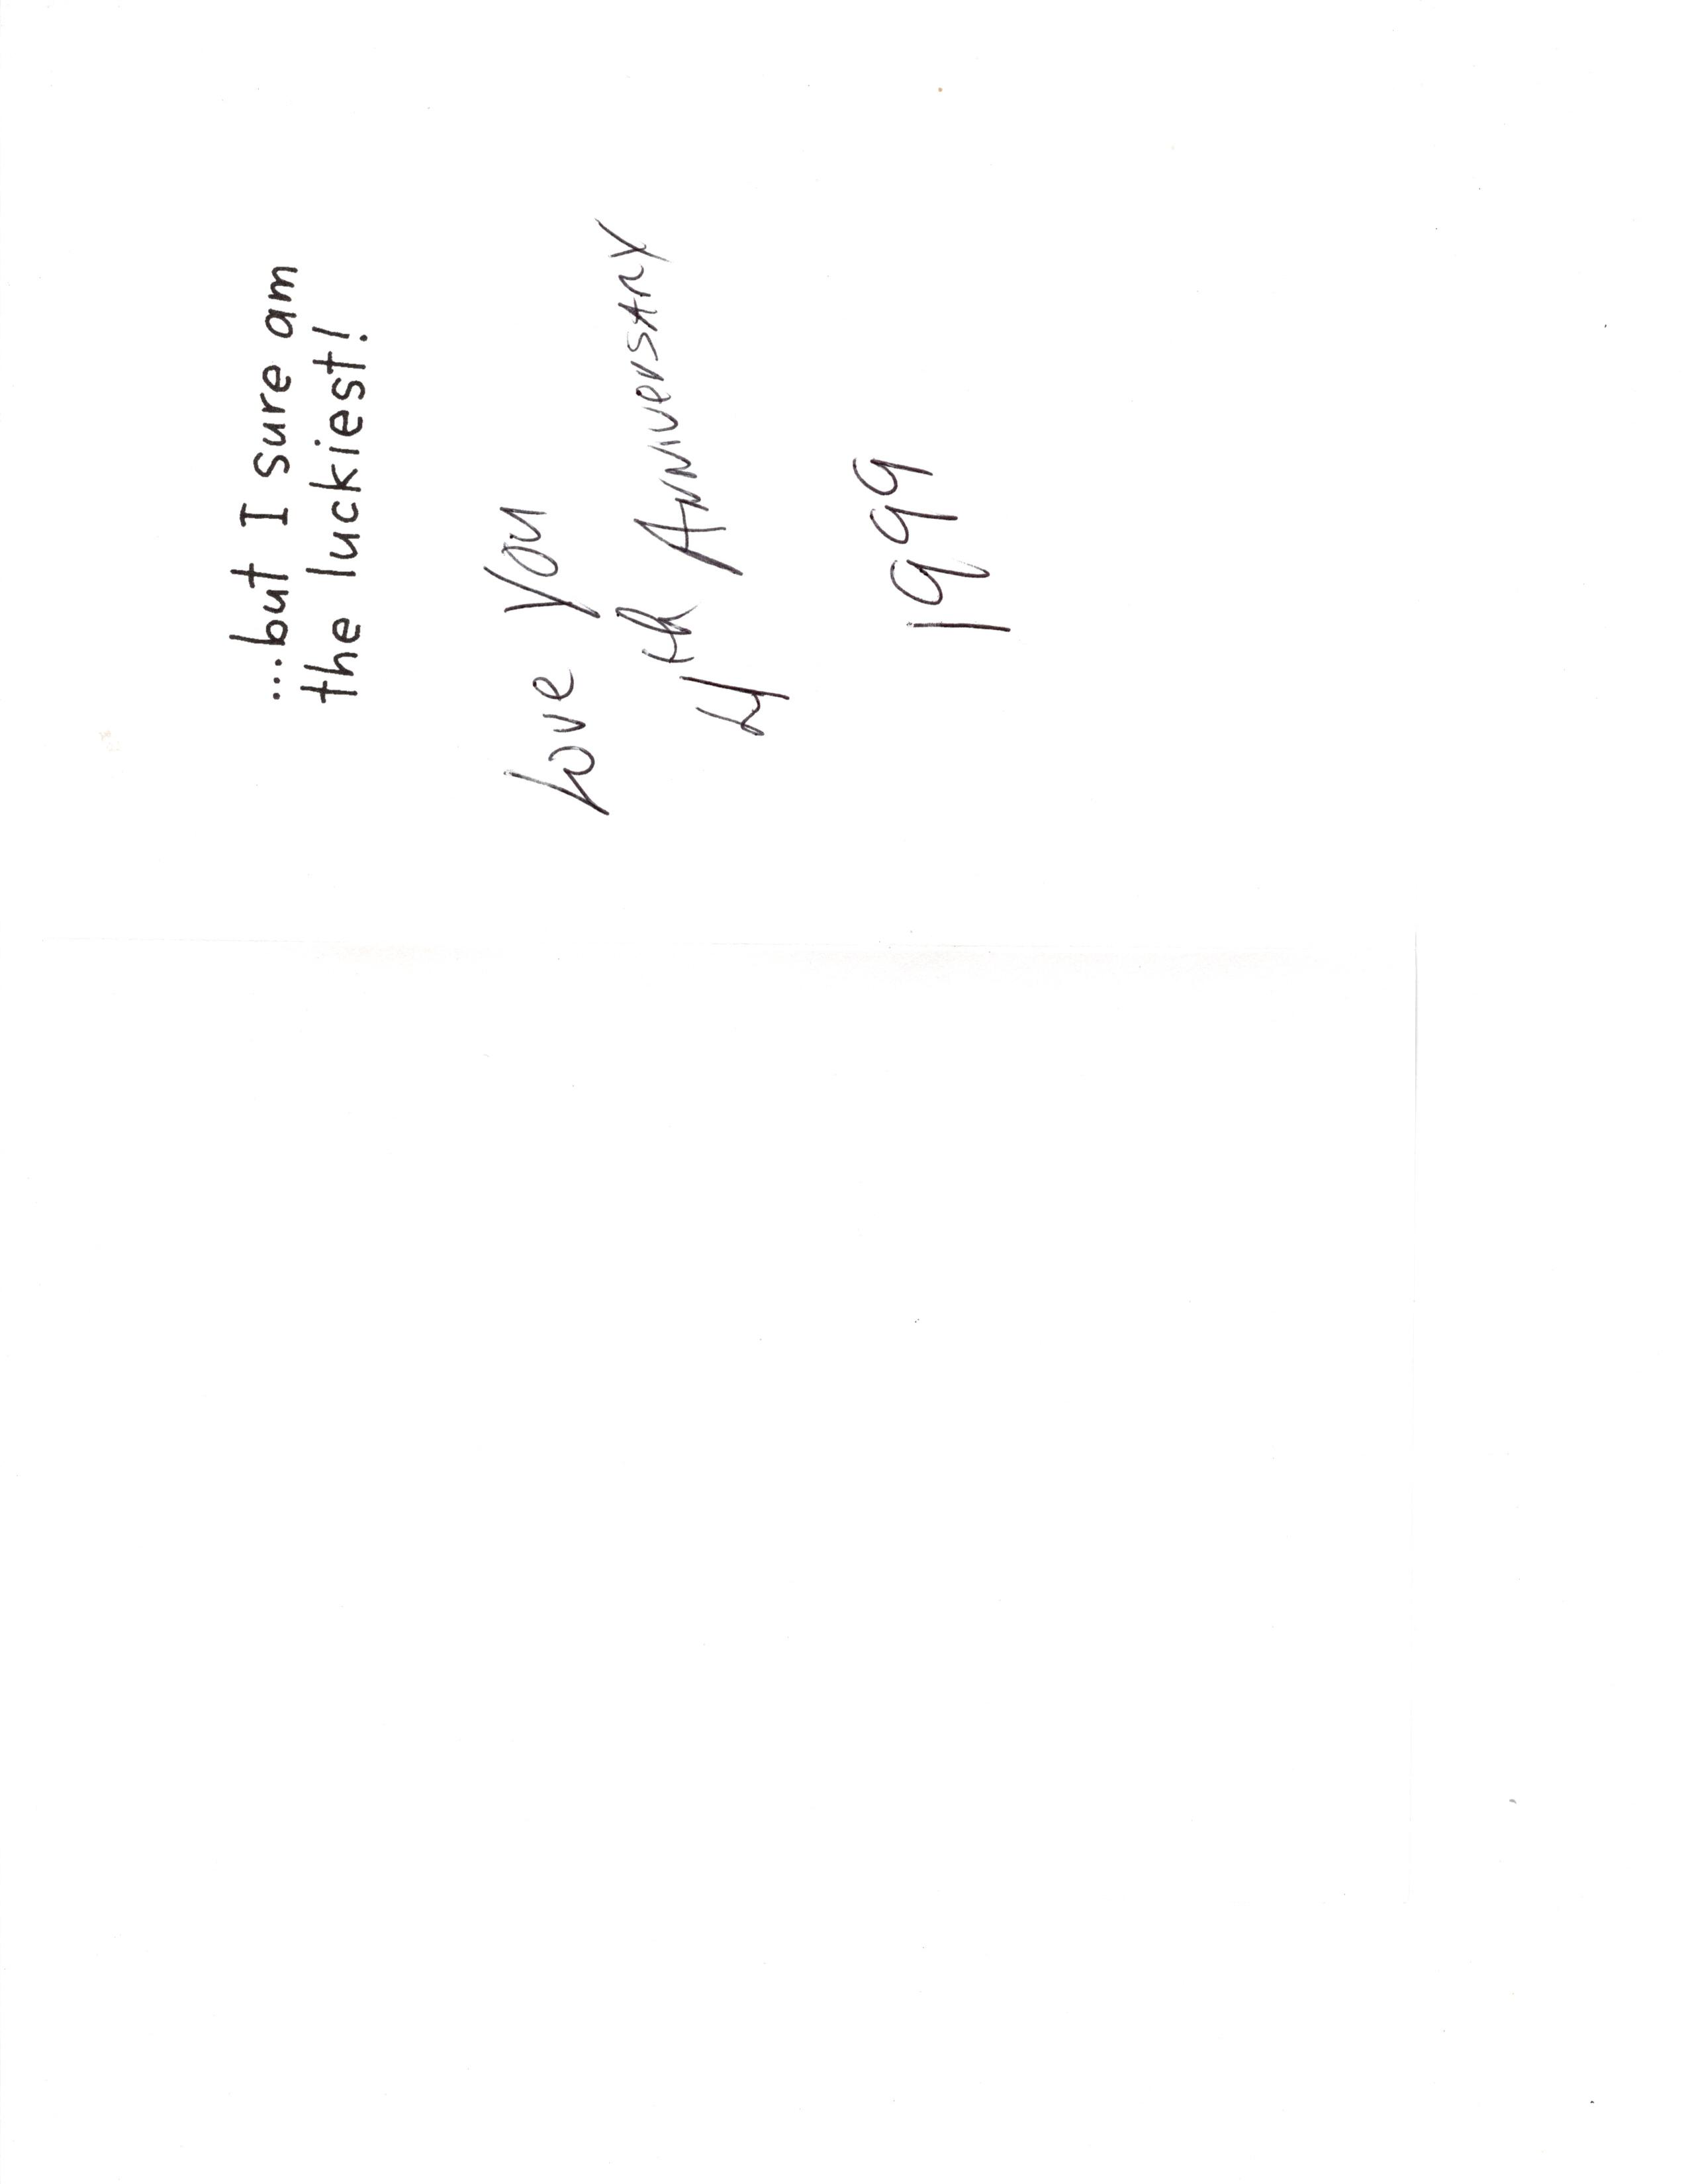 ...but I sure am
the luckiest!
Love You
4th Anniversary
1999